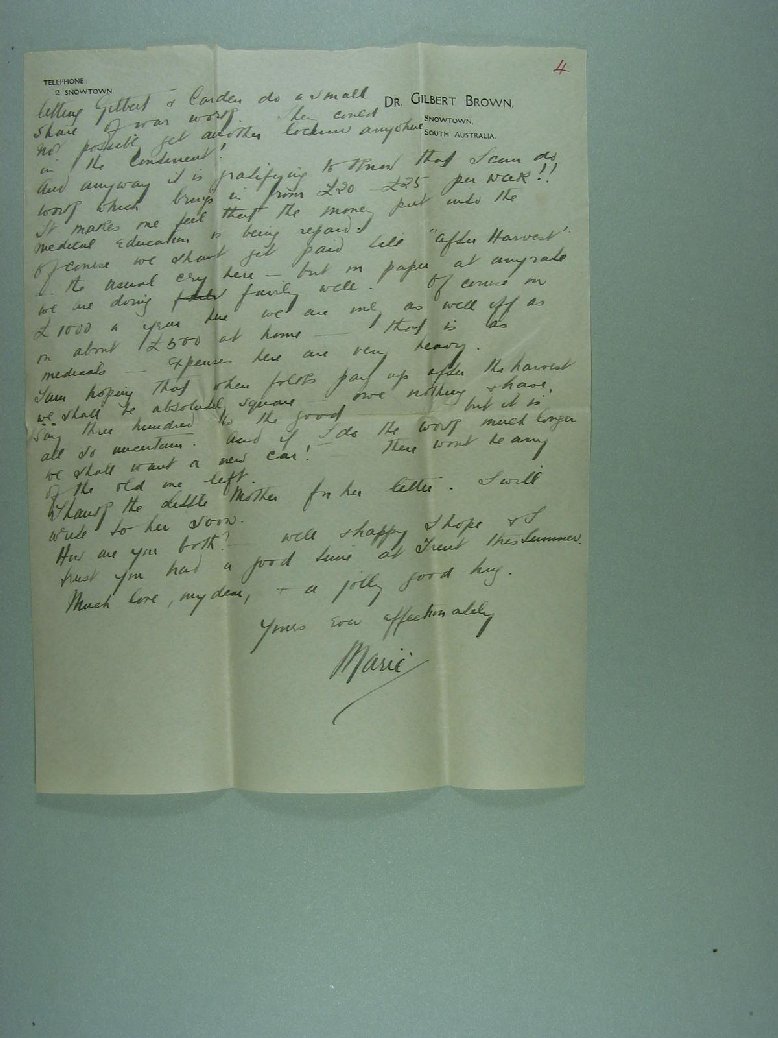 4
TELEPHONE
2 SNOWTOWN.
DR. GILBERT BROWN.
SNOWTOWN,
SOUTH AUSTRALIA.
letting Gilbert & Carden do a small
share of war work. They could
not possibly get another locum anywhere
in the Continent!
And anyway it is gratifying to know that I can do
work which brings in from £20 - £25 per week!!
It makes one feel that the money put into the
medical education is being repaid
Of course we shant get paid till "after Harvest"
is the usual cry here – but on paper at any rate
we are doing fairly well. Of course on
£1000 a year here we are only as well off as
on about £500 at home — that is as
medicals – Expenses here are very heavy.
I am hoping that when folks pay up after the harvest
we shall be absolutely square – owe nothing & have,
say three hundred to the good but it is
all so uncertain. And if I do the work much longer
we shall want a new car! – There wont be any
of the old one left.
Thank the Little Mother for her letter. I will
write to her soon.
How are you both? – well & happy I hope & I
trust you had a good time at Trent this summer.
Much love, my dear, + a jolly good hug.
Yours ever affectionately
Marie